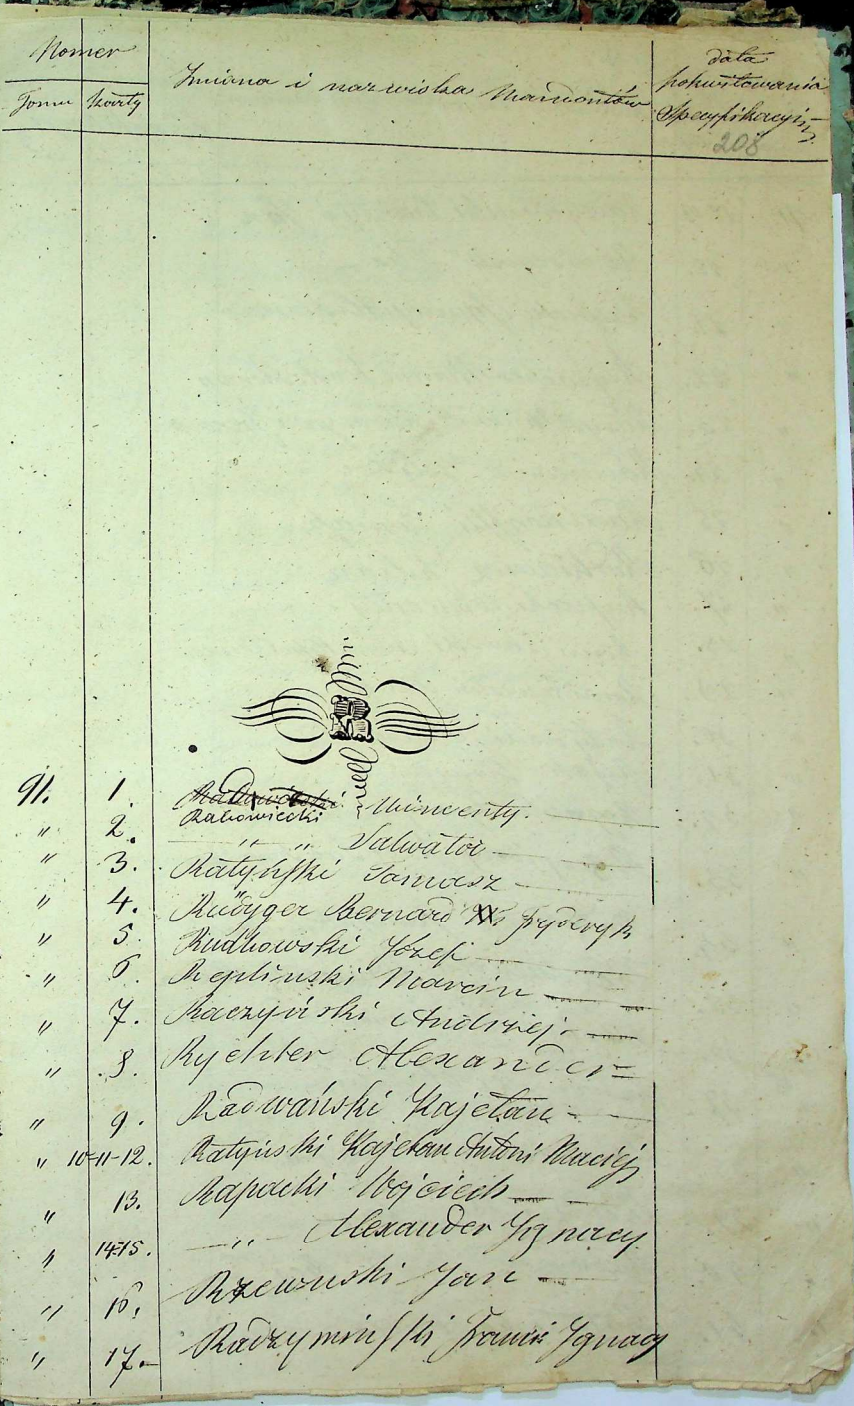 Nomer
Tomu Karty
Imiona i nazwiska Mandantów
data
pokwitowania
Specyfikacyi
208
R
91. 1. Radowiecki Wincenty.
Rakowiecki
" 2. " " Salwator
" 3. Ratyński Tomasz
" 4. Rüdyger Bernard Fryderyk
" 5. Rudkowski Józef
" 6. Repliński Marcin
" 7. Raczyński Andrzej.
" 8. Rychter Alexander
" 9. Radwański Kajetan
" 10-11-12. Ratyński Kajetan Antoni Maciej
" 13. Rapacki Wojciech
" 14-15. " Alexander Ignacy
" 16. Rzewuski Jan
" 17. Radzymiński Franci Ignacy